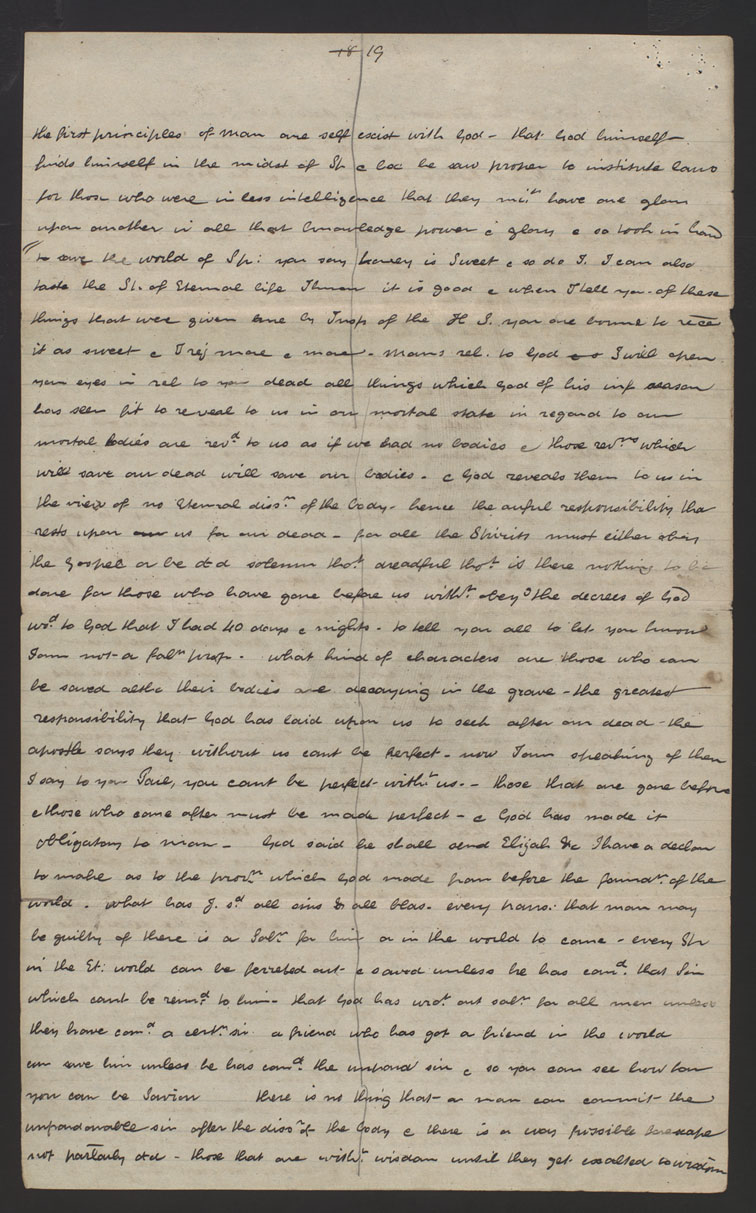 18 19
the first principles of man are self exist with God - that God himself
finds himself in the midst of Sp & bec he saw proper to institute laws
for those who were in less intelligence that they mit have one glory
upon another in all that knowledge power & glory & so took in hand
to save the world of Sp: you say honey is Sweet & so do I. I can also
taste the Sp. of Eternal life I know it is good & when I tell you of these
things that were given me by Insp of the H S. you are bound to rece
it as sweet & I rej more & more - mans rel. to God & I will open
your eyes in rel to yor dead all things which God of his inf reason
has seen fit to reveal to us in our mortal state in regard to our
mortal bodies are revd to us as if we had no bodies & those revns which
will save our dead will save our bodies - & God reveals them to us in
the view of no Eternal dissn of the body - hence the awful responsibility tha
rests upon us for our dead - for all the Spirits must either obey
the Gospel or be dd solemn thot dreadful thot is there nothing to be
done for those who have gone before us witht obeyg the decrees of God
wod to God that I had 40 days & nights - to tell you all to let you know
I am not a faln prop - what kind of characters are those who can
be saved altho their bodies are decaying in the grave - the greatest
responsibility that God has laid upon us to seek after our dead - the
apostle says they without us cant be perfect - now I am speaking of them
I say to you Paul, you cant be perfect witht us - those that are gone before
& those who come after must be made perfect - & God has made it
obligatory to man - God said he shall send Elijah &c I have a declon
to make as to the provns which God made from before the foundn of the
world. what has J. sd all sins & all blas - every trans: that man may
be guilty of there is a Saln for him or in the world to come - every Sp
in the Et: world can be ferreted out & saved unless he has comd. that Sin
which cant be remd to him - that God has wrot out saln for all men unless
they have comd a certn sin a friend who has got a friend in the world
can save him unless he has comd the unpard sin & so you can see how far
you can be Savior there is no thing that a man can commit the
unpardonable sin after the dissn of the body & there is a way possible for escape
not partarly dd - those that are witht wisdom until they get exalted to wisdom